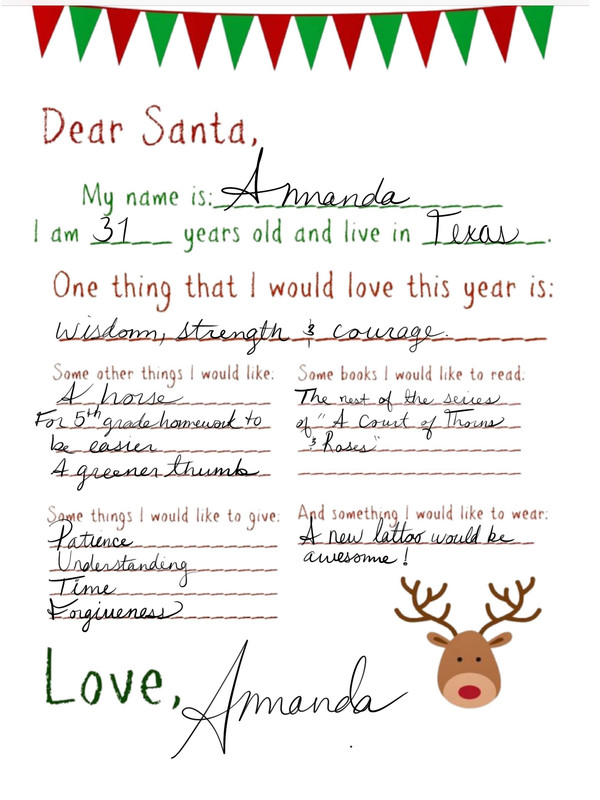 Dear Santa,
My name is: Amanda
I am 31 years old and live in Texas.
One thing that I would love this year is:
Wisdom, strength & courage.
Some other things I would like:
A horse
For 5th grade homework to
be easier
A greener thumb
Some books I would like to read:
The rest of the series
of "A Court of Thorns
& Roses"
Some things I would like to give:
Patience
Understanding
Time
Forgiveness
And something I would like to wear:
A new tattoo would be
awesome!
Love, Amanda